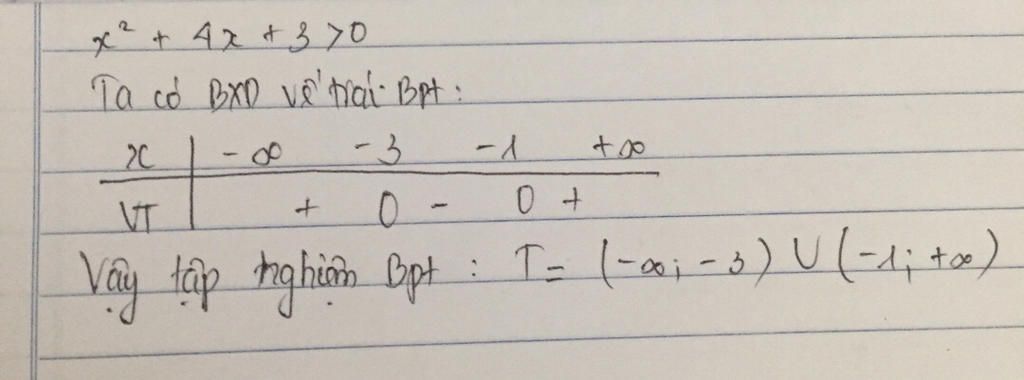 x² + 4x + 3 > 0
Ta có BXD vế trái Bpt :
x | -∞ -3 -1 +∞
VT | + 0 - 0 +
Vậy tập nghiệm Bpt : T = (-∞; -3) ∪ (-1; +∞)